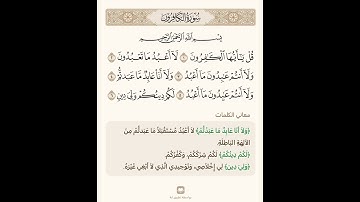 سُورَةُ الكَافِرُونَ
بِسْمِ اللَّهِ الرَّحْمَٰنِ الرَّحِيمِ
قُلْ يَٰٓأَيُّهَا ٱلْكَٰفِرُونَ ١ لَآ أَعْبُدُ مَا تَعْبُدُونَ ٢
وَلَآ أَنتُمْ عَٰبِدُونَ مَآ أَعْبُدُ ٣ وَلَآ أَنَا۠ عَابِدٌ مَّا عَبَدتُّمْ ٤
وَلَآ أَنتُمْ عَٰبِدُونَ مَآ أَعْبُدُ ٥ لَكُمْ دِينُكُمْ وَلِىَ دِينِ ٦
معاني الكلمات
﴿وَلَا أَنَا عَابِدٌ مَا عَبَدْتُمْ﴾ لَا أَعْبُدُ مُسْتَقْبَلًا مَا عَبَدْتُمْ مِنَ
الآلِهَةِ البَاطِلَةِ.
﴿لَكُمْ دِينُكُمْ﴾ لَكُمْ شِرْكُكُمْ، وَكُفْرُكُمْ.
﴿وَلِيَ دِينِ﴾ لِي إِخْلَاصِي، وَتَوْحِيدِي الَّذِي لَا أَبْغِي غَيْرَهُ.